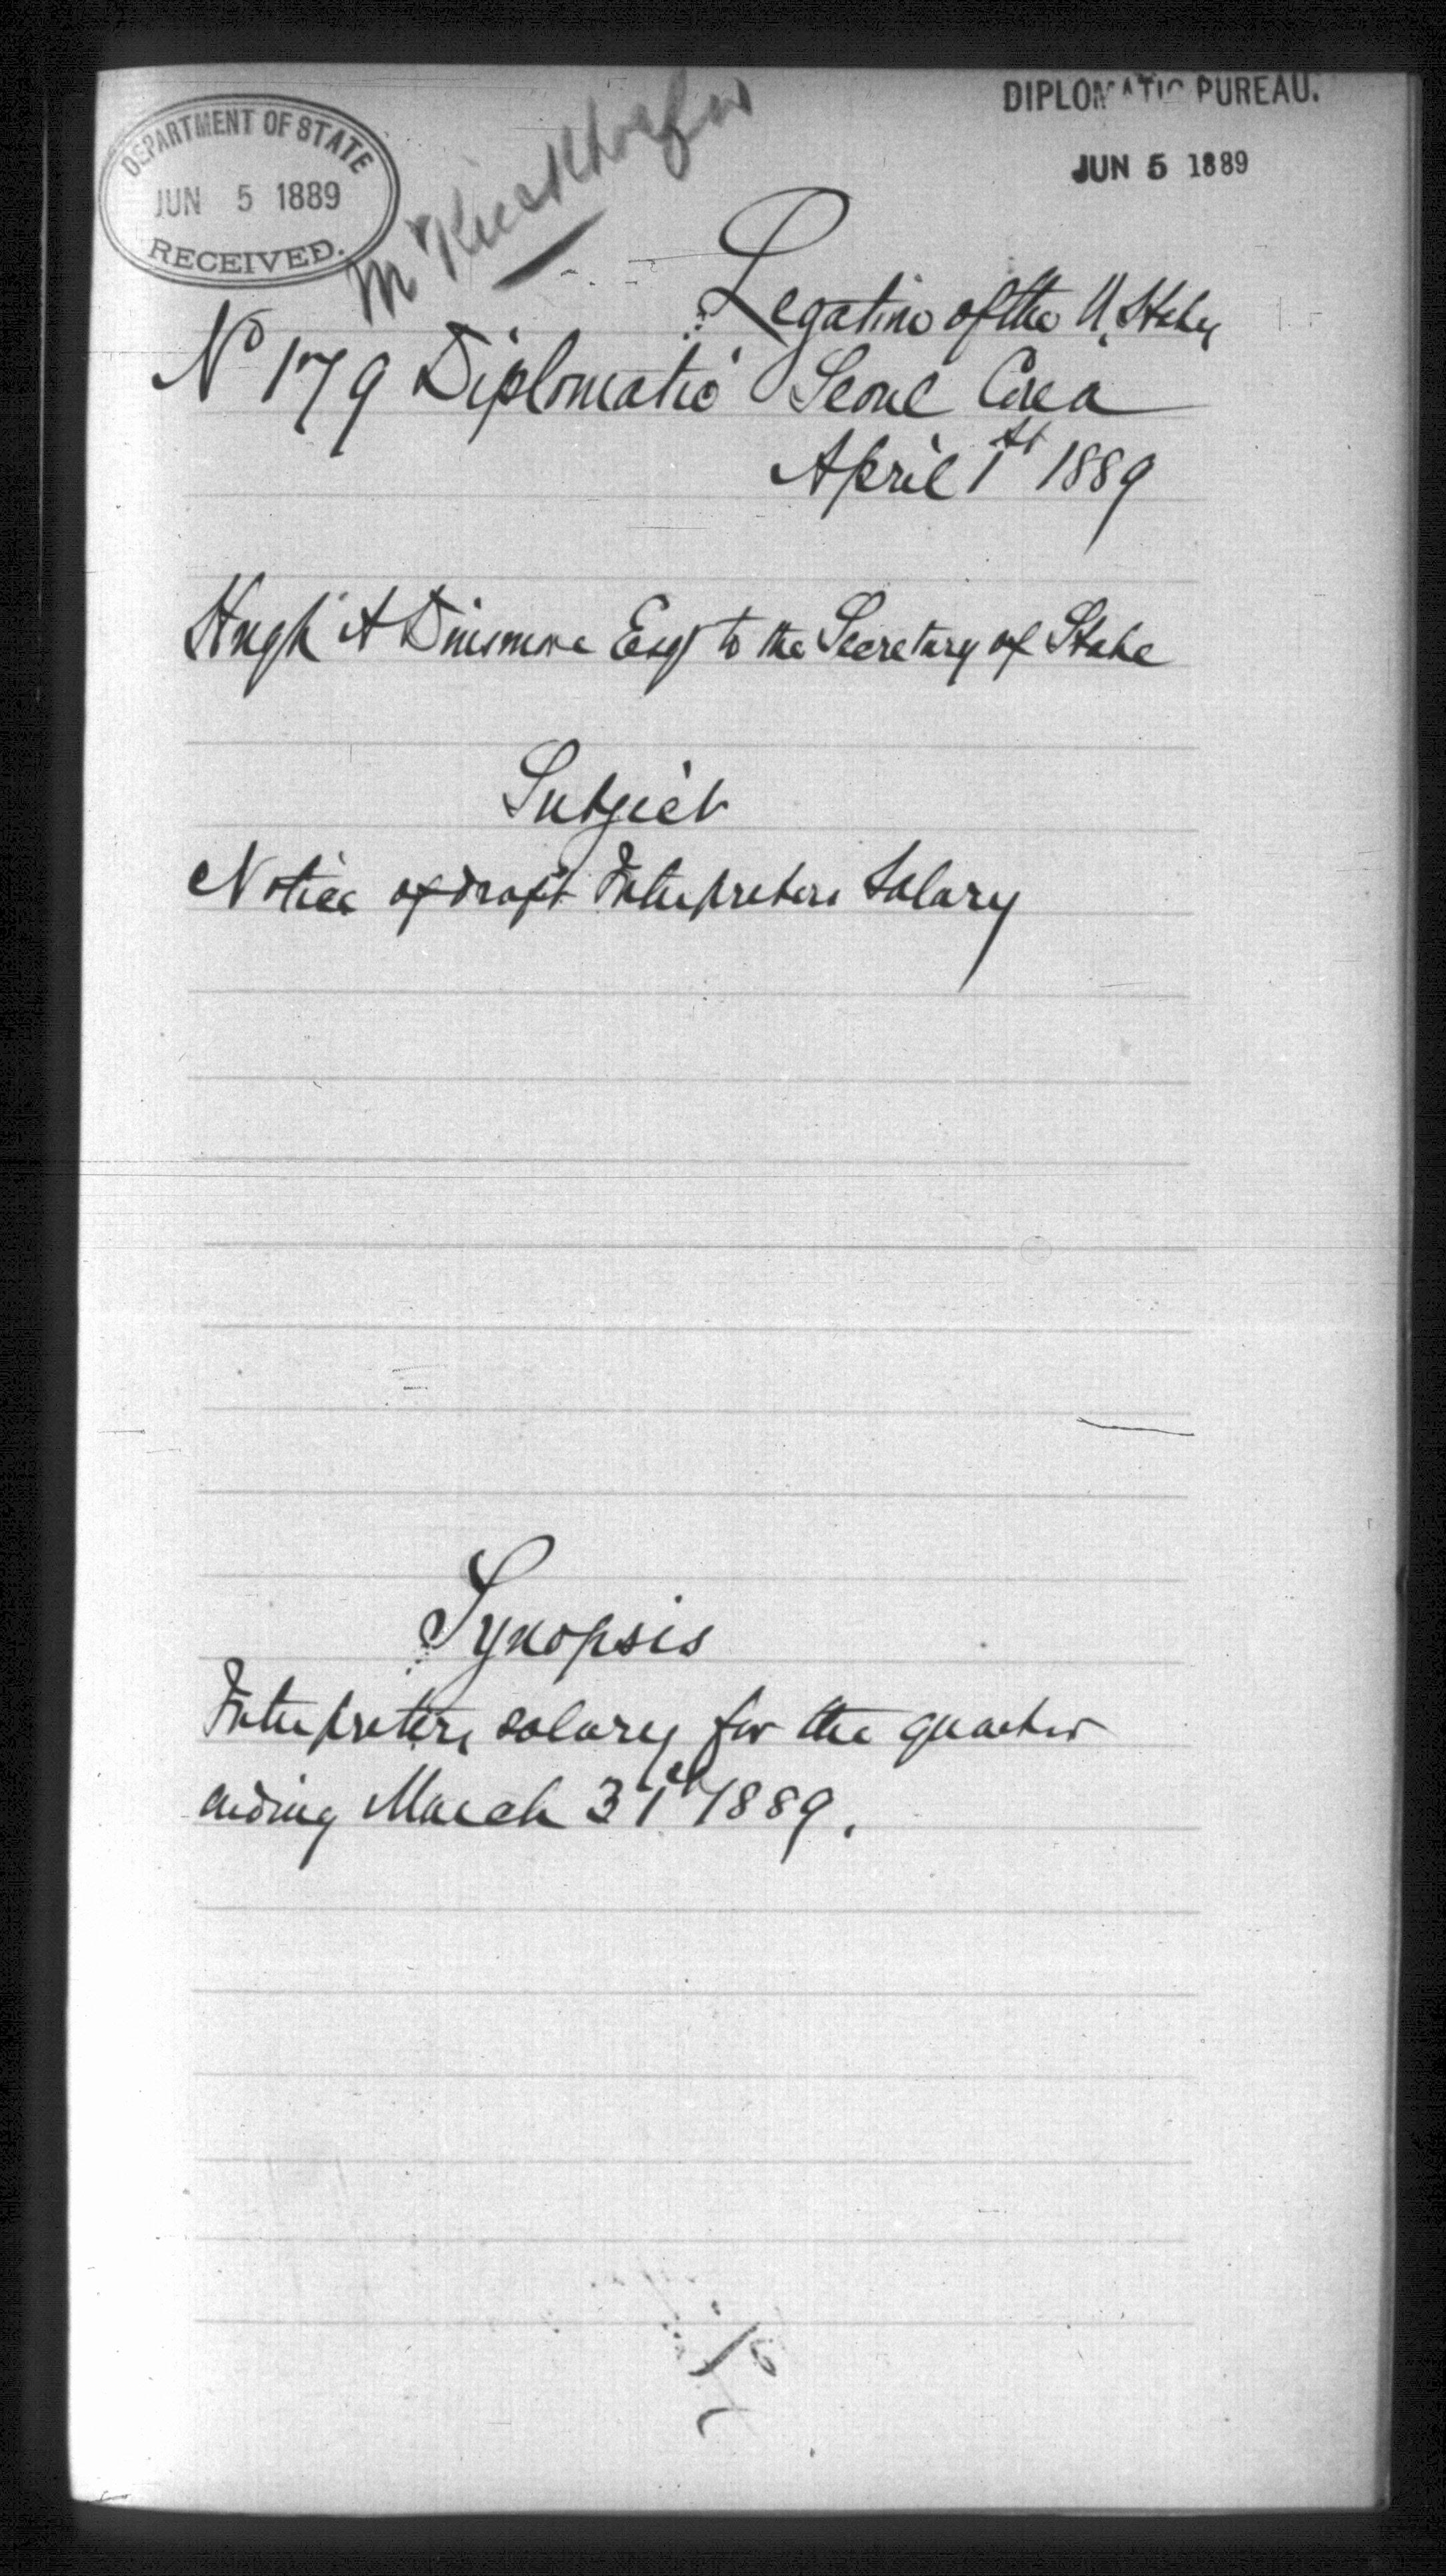 DEPARTMENT OF STATE
JUN 5 1889
RECEIVED.
DIPLOMATIC BUREAU.
JUN 5 1889
Mr Kieckhoefer
Legation of the U. States
No 179 Diplomatic Seoul Corea
April 1st 1889
Hugh A Dinsmore Esq to the Secretary of State
Subject
Notice of draft Interpreters Salary
Synopsis
Interpreters salary for the quarter
ending March 31st 1889.